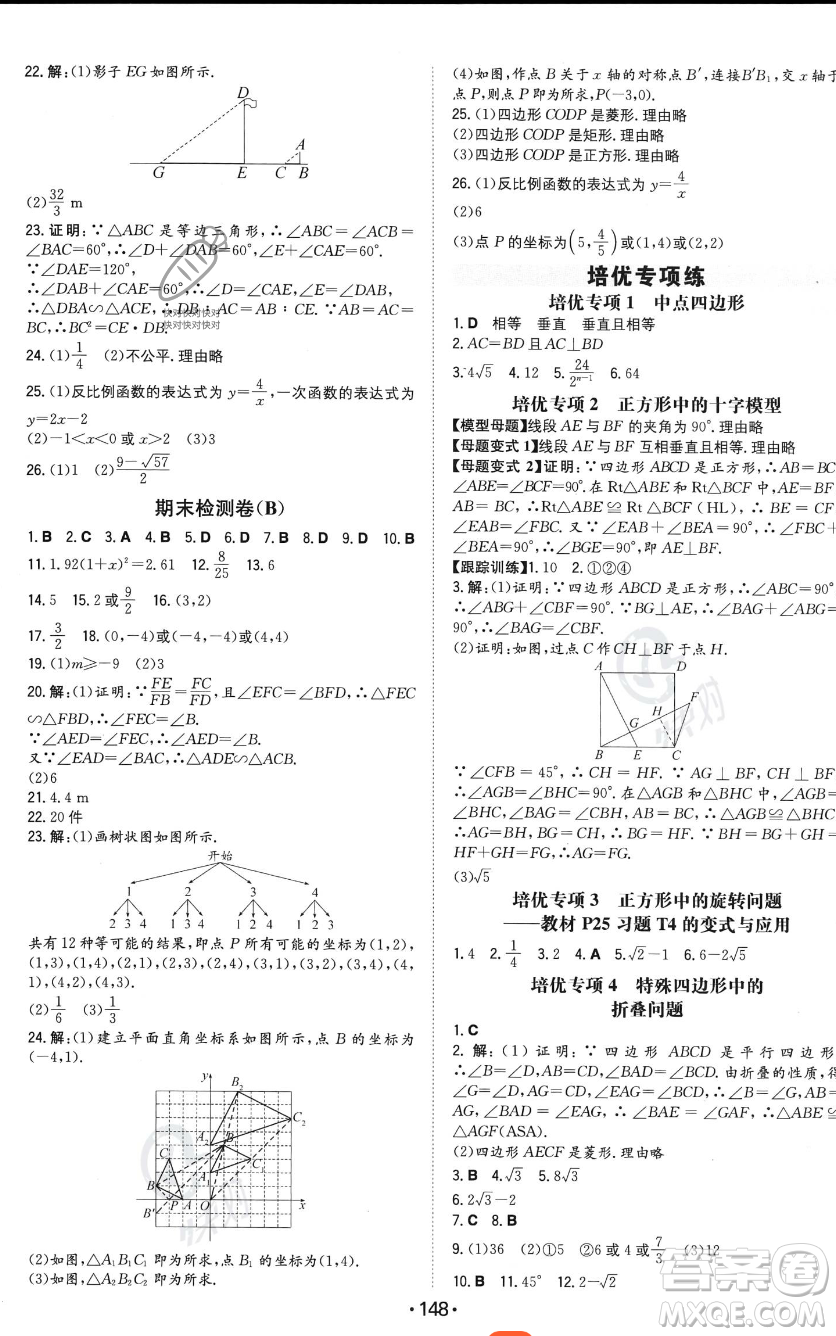 22.解:(1)影子 EG 如图所示.
D
A
G E C B
(2)32/3 m
23.证明:∵△ABC 是等边三角形,∴∠ABC=∠ACB=
∠BAC=60°,∴∠D+∠DAB=60°,∠E+∠CAE=60°.
∵∠DAE=120°,
∴∠DAB+∠CAE=60°,∴∠D=∠CAE,∠E=∠DAB,
∴△DBA∽△ACE,∴DB:AC=AB:CE.∵AB=AC=
BC,∴BC²=CE·DB.
24.(1)1/4 (2)不公平.理由略
25.(1)反比例函数的表达式为 y=4/x,一次函数的表达式为
y=2x-2
(2)-1<x<0 或 x>2 (3)3
26.(1)1 (2)(9-√57)/2
期末检测卷(B)
1.B 2.C 3.A 4.B 5.D 6.D 7.B 8.D 9.D 10.B
11.1.92(1+x)²=2.61 12.8/25 13.6
14.5 15.2 或 9/2 16.(3,2)
17.3/2 18.(0,-4)或(-4,-4)或(4,4)
19.(1)m≥-9 (2)3
20.解:(1)证明:∵FE/FB=FC/FD,且∠EFC=∠BFD,∴△FEC
∽△FBD,∴∠FEC=∠B.
∵∠AED=∠FEC,∴∠AED=∠B.
又∵∠EAD=∠BAC,∴△AED∽△ACB.
(2)6
21.4.4 m
22.20 件
23.解:(1)画树状图如图所示.
开始
1 2 3 4
2 3 4 1 3 4 1 2 4 1 2 3
共有 12 种等可能的结果,即点 P 所有可能的坐标为(1,2),
(1,3),(1,4),(2,1),(2,3),(2,4),(3,1),(3,2),(3,4),(4,
1),(4,2),(4,3).
(2)1/6 (3)1/3
24.解:(1)建立平面直角坐标系如图所示,点 B 的坐标为
(-4,1).
y
B₂
C₂
A₂ B₁
C
A₁ C₁
B
P A O x
B′
(2)如图,△A₁B₁C₁ 即为所求,点 B₁ 的坐标为(1,4).
(3)如图,△A₂B₂C₂ 即为所求.
(4)如图,作点 B 关于 x 轴的对称点 B′,连接 B′B₁,交 x 轴于
点 P,则点 P 即为所求,P(-3,0).
25.(1)四边形 CODP 是菱形.理由略
(2)四边形 CODP 是矩形.理由略
(3)四边形 CODP 是正方形.理由略
26.(1)反比例函数的表达式为 y=4/x
(2)6
(3)点 P 的坐标为(5,4/5)或(1,4)或(2,2)
培优专项练
培优专项 1 中点四边形
1.D 相等 垂直 垂直且相等
2.AC=BD 且 AC⊥BD
3.4√5 4.12 5.24/2ⁿ⁻¹ 6.64
培优专项 2 正方形中的十字模型
【模型母题】线段 AE 与 BF 的夹角为 90°.理由略
【母题变式 1】线段 AE 与 BF 互相垂直且相等.理由略
【母题变式 2】证明:∵四边形 ABCD 是正方形,∴AB=BC
∠ABE=∠BCF=90°.在 Rt△ABE 和 Rt△BCF 中,AE=BF
∴Rt△ABE≌Rt△BCF(HL),∴BE=CF
∠EAB=∠FBC.又∵∠EAB+∠BEA=90°,∴∠FBC+
∠BEA=90°,∴∠BGE=90°,即 AE⊥BF.
【跟踪训练】1.10 2.①②④
3.解:(1)证明:∵四边形 ABCD 是正方形,∴∠ABC=90°
∴∠ABG+∠CBF=90°.∵BG⊥AE,∴∠BAG+∠ABG=
90°,∴∠BAG=∠CBF.
(2)证明:如图,过点 C 作 CH⊥BF 于点 H.
A D
F
H
G
B E C
∵∠CFB=45°,∴CH=HF.∵AG⊥BF,CH⊥BF
∴∠AGB=∠BHC=90°.在△AGB 和△BHC 中,∠AGB=
∠BHC,∠BAG=∠CBH,AB=BC,∴△AGB≌△BHC
∴AG=BH,BG=CH,∴BG=HF.∵BH=BG+GH
=HF+GH=FG,∴AG=FG.
(3)√5
培优专项 3 正方形中的旋转问题
——教材 P25 习题 T4 的变式与应用
1.4 2.1/4 3.2 4.A 5.√2-1 6.6-2√5
培优专项 4 特殊四边形中的
折叠问题
1.C
2.解:(1)证明:∵四边形 ABCD 是平行四边形
∴∠B=∠D,AB=CD,∠BAD=∠BCD.由折叠的性质,得
∠G=∠D,AG=CD,∠GAF=∠BCD,∴∠B=∠G,AB=
AG,∠BAD=∠EAG,∴∠BAE=∠GAF,∴△ABE≌
△AGF(ASA).
(2)四边形 AECF 是菱形.理由略
3.B 4.√3 5.8√3
6.2√3-2
7.C 8.B
9.(1)36 (2)①5 ②6 或 4 或 7/3 (3)12
10.B 11.45° 12.2-√2
·148·
快对快对快对
快对快对快对
快对
快对
答案卷
MXQE.COM